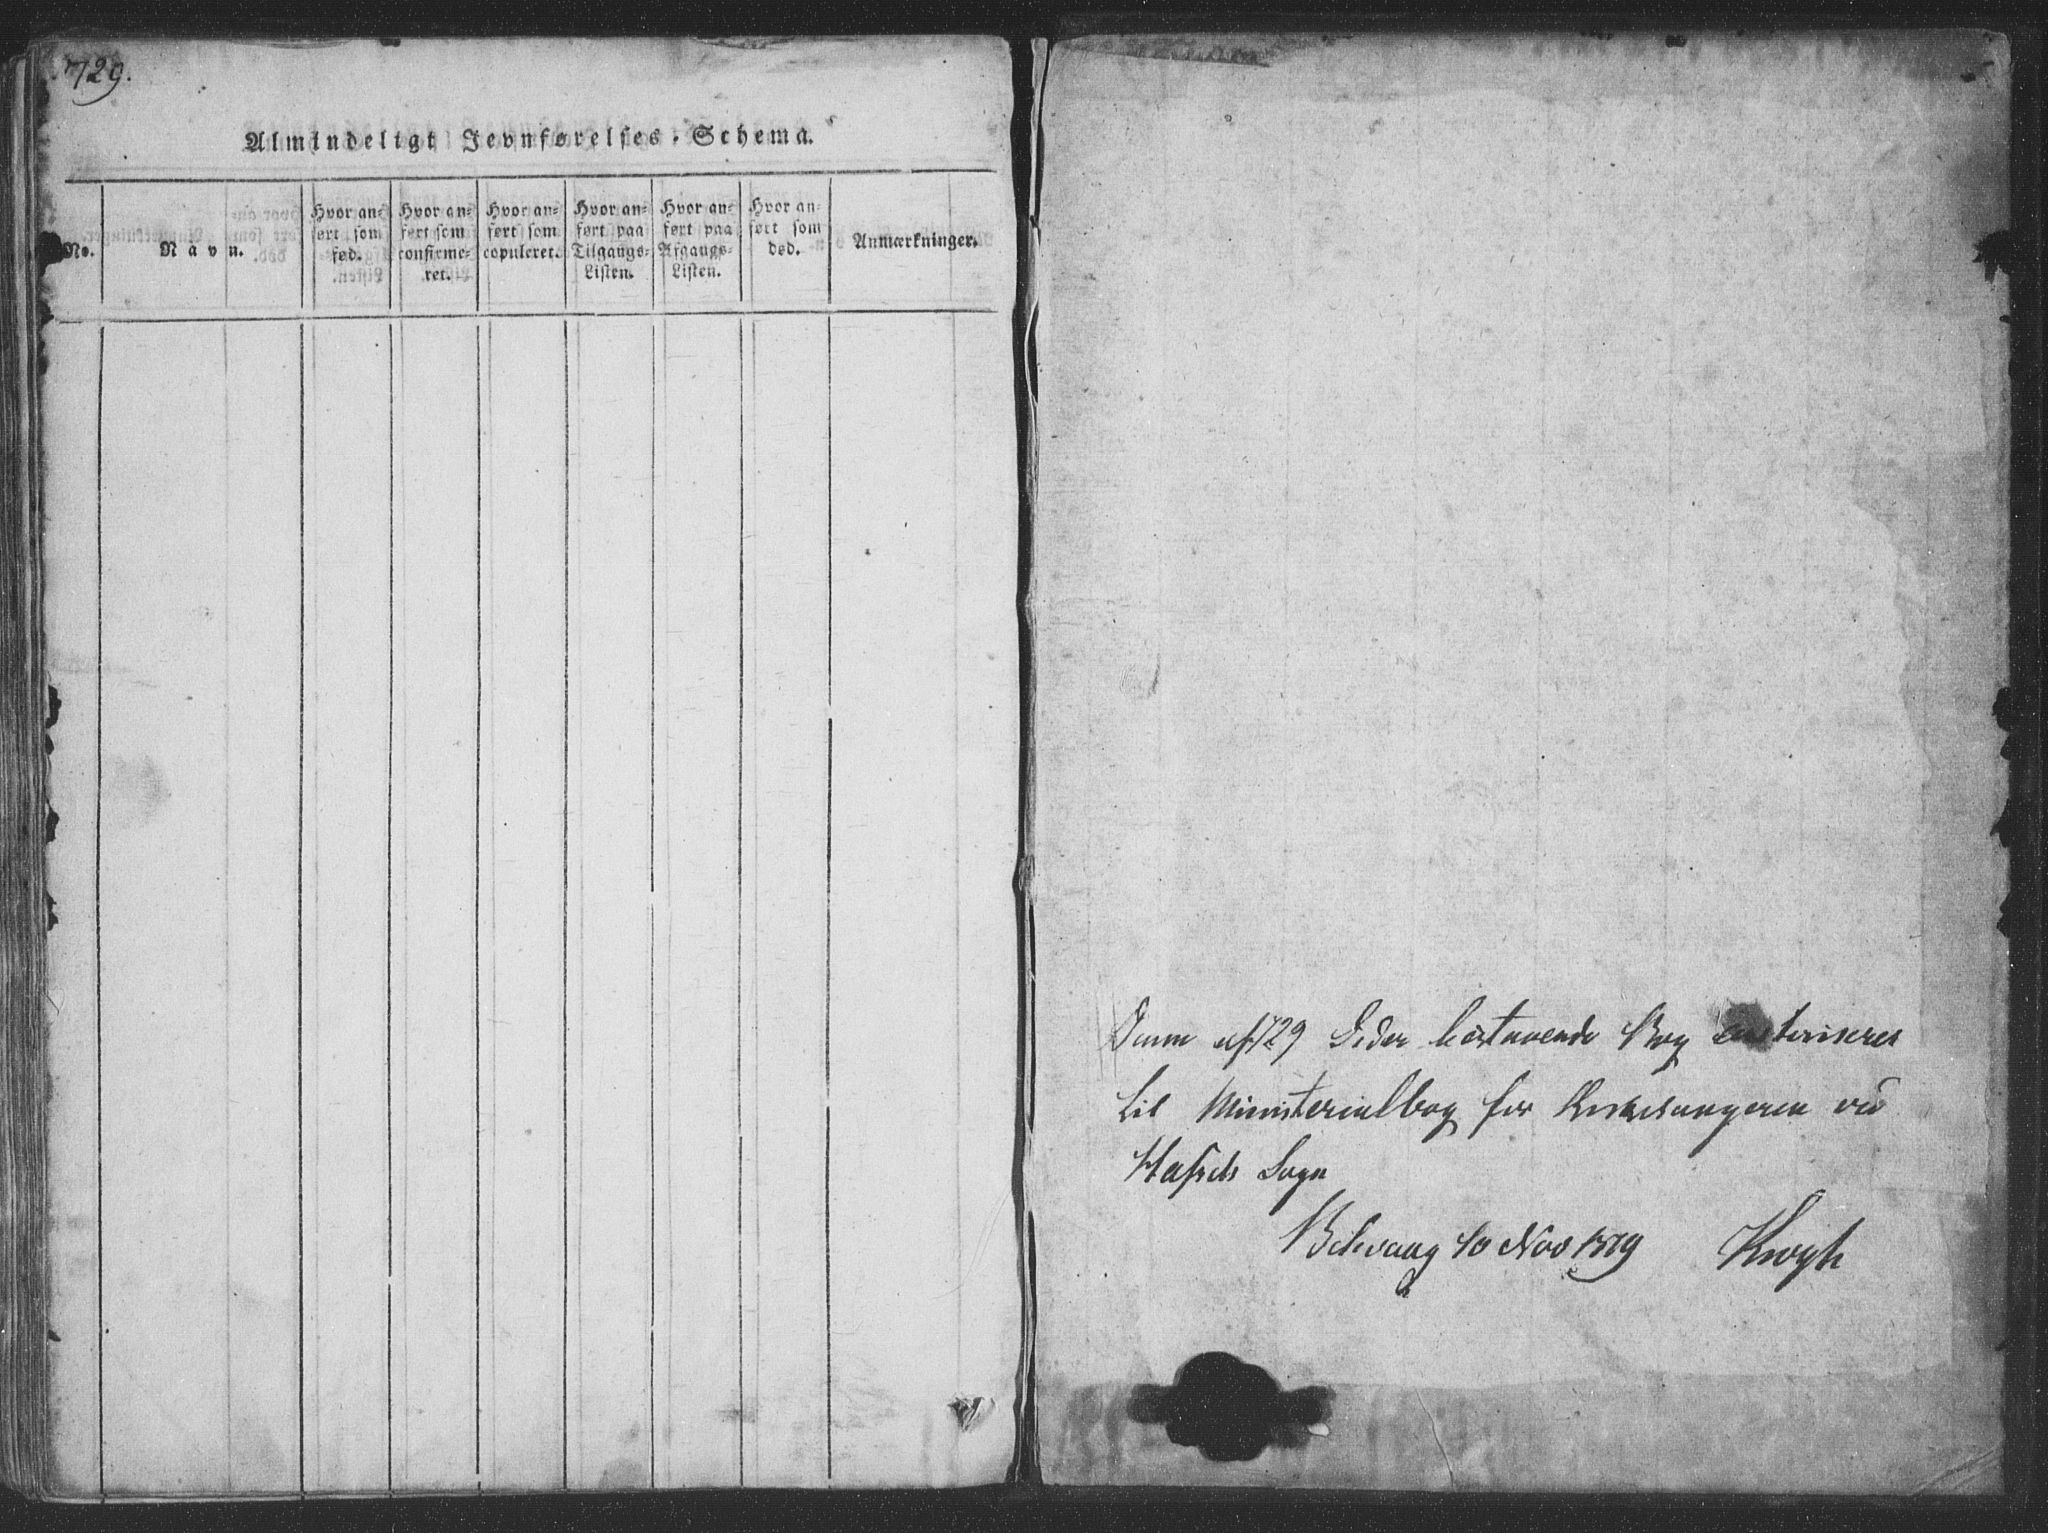 729.
Almindeligt Jevnførelses-Schema.
No.
Navn.
Hvor an-
ført som
fød.
Hvor an-
ført som
confirme-
ret.
Hvor an-
ført som
copuleret.
Hvor an-
ført paa
Tilgangs-
Listen.
Hvor an-
ført paa
Afgangs-
Listen.
Hvor an-
ført som
død.
Anmærkninger.
Denne af 729 Sider bestaaende Bog autoriseres
til Ministerialbog for Kirkesangeren ved
Hafslo Sogn
10 Nov 1819 Krogh